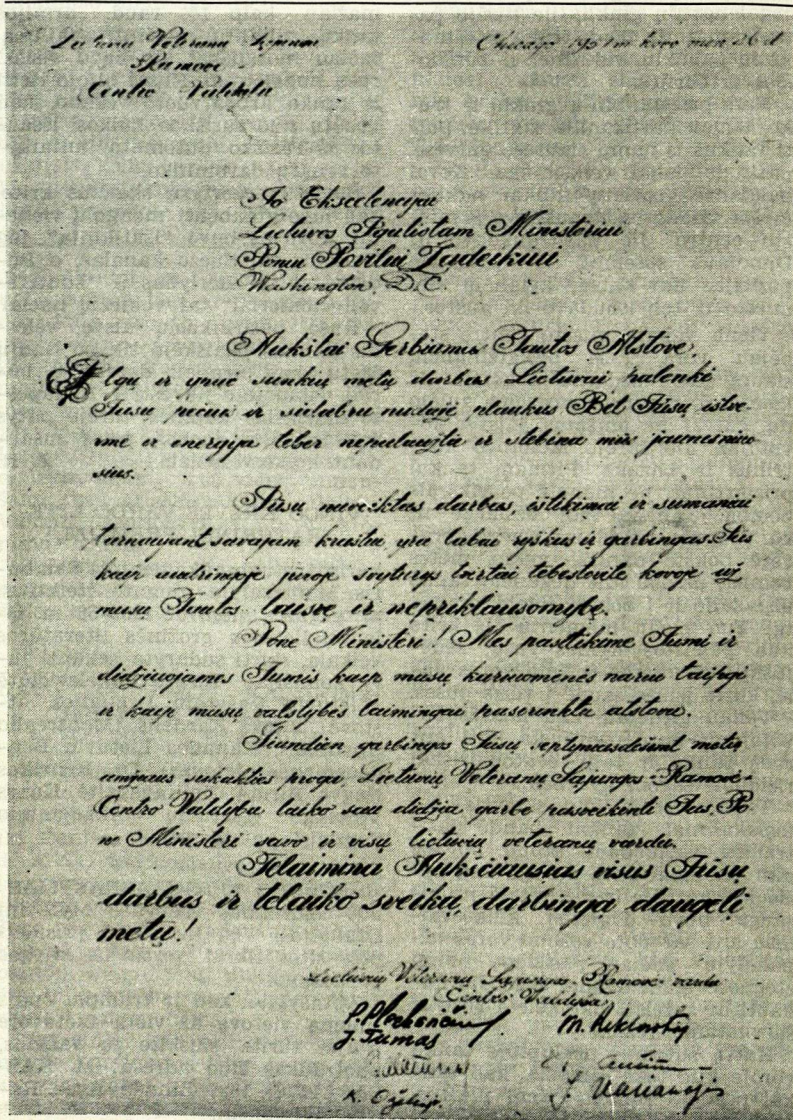 Lietuvių Veteranų Sąjunga
Ramovė
Centro Valdyba
Chicago 1951 m kovo mėn 26 d
Jo Ekscelencijai
Lietuvos Įgaliotam Ministeriui
Ponui Povilui Žadeikiui
Washington, D.C.
Aukštai Gerbiamas Tautos Atstove,
Ilgų ir ypač sunkių metų darbas Lietuvai palenkė
Jūsų pečius ir sidabru nudažė plaukus Bet Jūsų ištver-
mė ir energija teber nepalaužta ir stebina mus jaunesniuo-
sius.
Jūsų nuveiktas darbas, ištikimai ir sumaniai
tarnaujant savajam kraštui yra labai ryškus ir garbingas. Jūs
kaip audringoje jūroje švyturys tvirtai tebestovite kovoje už
mūsų Tautos laisvę ir nepriklausomybę.
Pone Ministeri! Mes pasitikime Jumi ir
didžiuojamės Jumis kaip mūsų kariuomenės nariu taipgi
ir kaip mūsų valstybės laimingai pasirinktu atstovu.
Šiandien garbingos Jūsų septyniasdešimt metų
amžiaus sukakties proga Lietuvių Veteranų Sąjungos-Ramovė-
Centro Valdyba laiko sau didžia garbe pasveikinti Jus, Po
ne Ministeri savo ir visų lietuvių veteranų vardu.
Telaimina Aukščiausias visus Jūsų
darbus ir telaiko sveiką, darbingą daugelį
metų!
Lietuvių Veteranų Sąjungos-Ramovė-vardu
Centro Valdyba
P. Plechavičius
J. Tumas
K. Ožélis